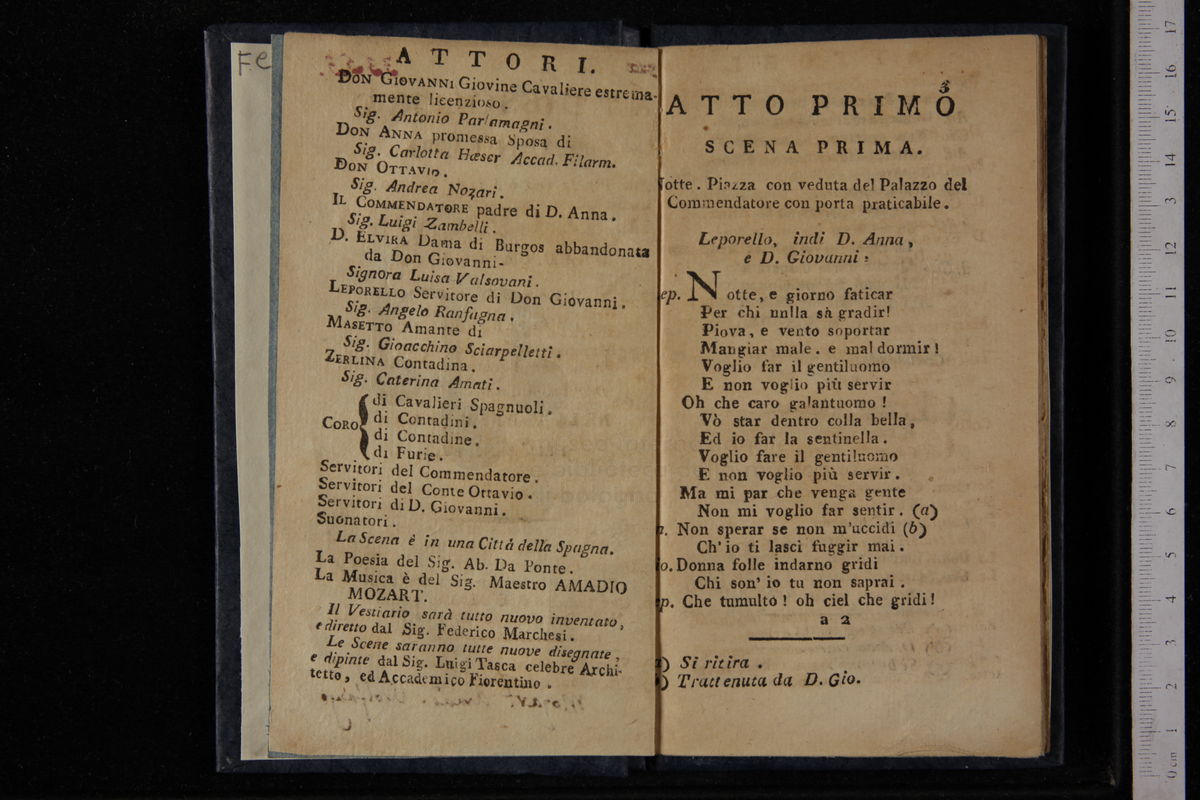 Fe
ATTORI.
DON GIOVANNI Giovine Cavaliere estrema-
mente licenzioso.
Sig. Antonio Parlamagni.
DON ANNA promessa Sposa di
Sig. Carlotta Hæser Accad. Filarm.
DON OTTAVIO.
Sig. Andrea Nozari.
IL COMMENDATORE padre di D. Anna.
Sig. Luigi Zambelli.
D. ELVIRA Dama di Burgos abbandonata
da Don Giovanni-
Signora Luisa Valsovani.
LEPORELLO Servitore di Don Giovanni.
Sig. Angelo Ranfagna.
MASETTO Amante di
Sig. Gioacchino Sciarpelletti.
ZERLINA Contadina.
Sig. Caterina Amati.
CORO
di Cavalieri Spagnuoli.
di Contadini.
di Contadine.
di Furie.
Servitori del Commendatore.
Servitori del Conte Ottavio.
Servitori di D. Giovanni.
Suonatori.
La Scena è in una Città della Spagna.
La Poesia del Sig. Ab. Da Ponte.
La Musica è del Sig. Maestro AMADIO
MOZART.
Il Vestiario sarà tutto nuovo inventato,
e diretto dal Sig. Federico Marchesi.
Le Scene saranno tutte nuove disegnate,
e dipinte dal Sig. Luigi Tasca celebre Archi-
tetto, ed Accademico Fiorentino.
3
ATTO PRIMO
SCENA PRIMA.
otte. Piazza con veduta del Palazzo del
Commendatore con porta praticabile.
Leporello, indi D. Anna,
e D. Giovanni:
ep. Notte, e giorno faticar
Per chi nulla sà gradir!
Piova, e vento soportar
Mangiar male. e mal dormir!
Voglio far il gentiluomo
E non voglio più servir
Oh che caro galantuomo!
Vò star dentro colla bella,
Ed io far la sentinella.
Voglio fare il gentiluomo
E non voglio più servir.
Ma mi par che venga gente
Non mi voglio far sentir. (a)
Non sperar se non m'uccidi (b)
Ch' io ti lasci fuggir mai.
o. Donna folle indarno gridi
Chi son' io tu non saprai.
p. Che tumulto! oh ciel che gridi!
a 2
) Si ritira.
) Trattenuta da D. Gio.
0 cm 1 2 3 4 5 6 7 8 9 10 11 12 13 14 15 16 17